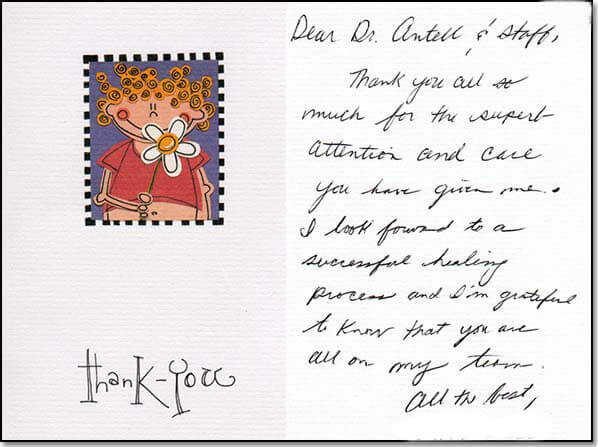 thank-you
Dear Dr. Antell & staff,
Thank you all so
much for the superb
attention and care
you have given me.
I look forward to a
successful healing
process and I'm grateful
to know that you are
all on my team.
All the best,